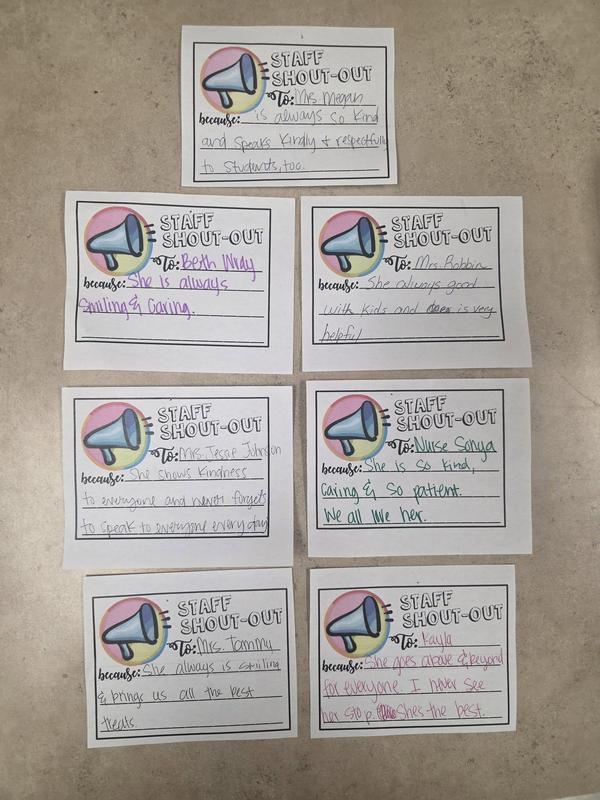 STAFF
SHOUT-OUT
To: Mrs. Megan
because: is always so kind
and speaks kindly & respectfully
to students, too.
STAFF
SHOUT-OUT
To: Beth Wray
because: She is always
Smiling & Caring.
STAFF
SHOUT-OUT
To: Mrs. Robbin
because: She always good
with kids and is very
helpful
STAFF
SHOUT-OUT
To: Mrs. Jessie Johnson
because: She shows Kindness
to everyone and never forgets
to speak to everyone every day
STAFF
SHOUT-OUT
To: Nurse Sonya
because: She is so kind,
Caring & so patient.
We all love her.
STAFF
SHOUT-OUT
To: Mrs. Tammy
because: She always is smiling
& brings us all the best
treats.
STAFF
SHOUT-OUT
To: Kayla
because: She goes above & beyond
for everyone. I never see
her stop. She's the best.